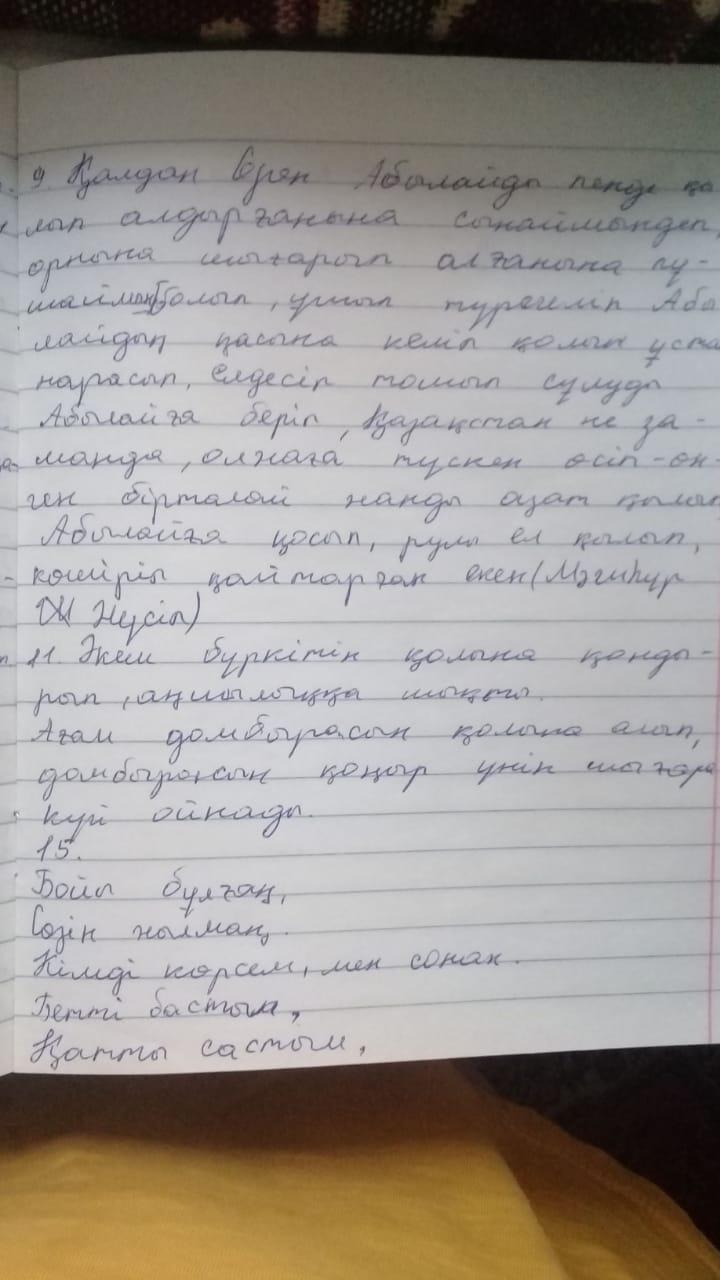 9. Қалдан Серен Абылайды пенде қа
лып алдырғанына сынаймындеп,
орнына шығарып алғанына пу-
шаймен болып, ұшып түрегеліп Абы
лайдың қасына келіп қолын ұста
нарасып, елдесіп томып сұлуды
Абылайға беріп, Қазақстан не за-
манда, олжаға түскен өсіп-өн-
ген бірталай жанды азат қылып
Абылайға қосып, рулы ел қылып,
көшіріп қайтарған екен (Мәшһүр
Жүсіп)
11. Әкем бүркітін қолына қонды-
рып, аңшылыққа шықты.
Ағам домбырасын қолына алып,
домбырасын қоңыр үнін шығара
күй ойнады.
15.
Бойы бұлғаң,
Сөзін жылмаң,
Кімді көрсем, мен сонан.
Бетті бастым,
Қатты састым,